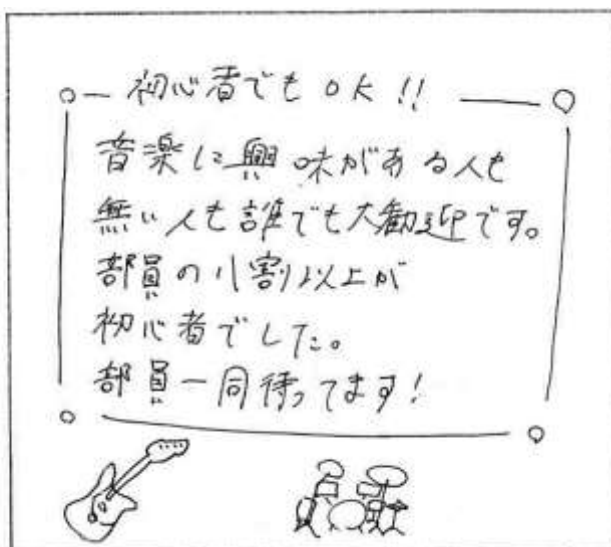 初心者でもOK!!
音楽に興味がある人も
無い人も誰でも大勧迎です。
部員の八割以上が
初心者でした。
部員一同待ってます!